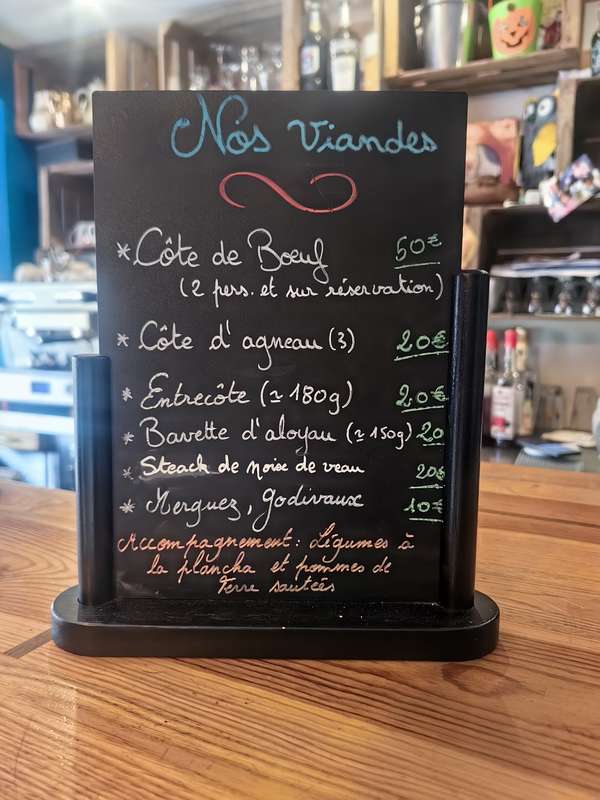 Nos Viandes
* Côte de Boeuf 50€
(2 pers. et sur réservation)
* Côte d'agneau (3) 20€
* Entrecôte (≃ 180g) 20€
* Bavette d'aloyau (≃ 150g) 20
* Steack de noix de veau 20€
* Merguez, Godivaux 10€
Accompagnement : Légumes à
la plancha et pommes de
Terre sautées